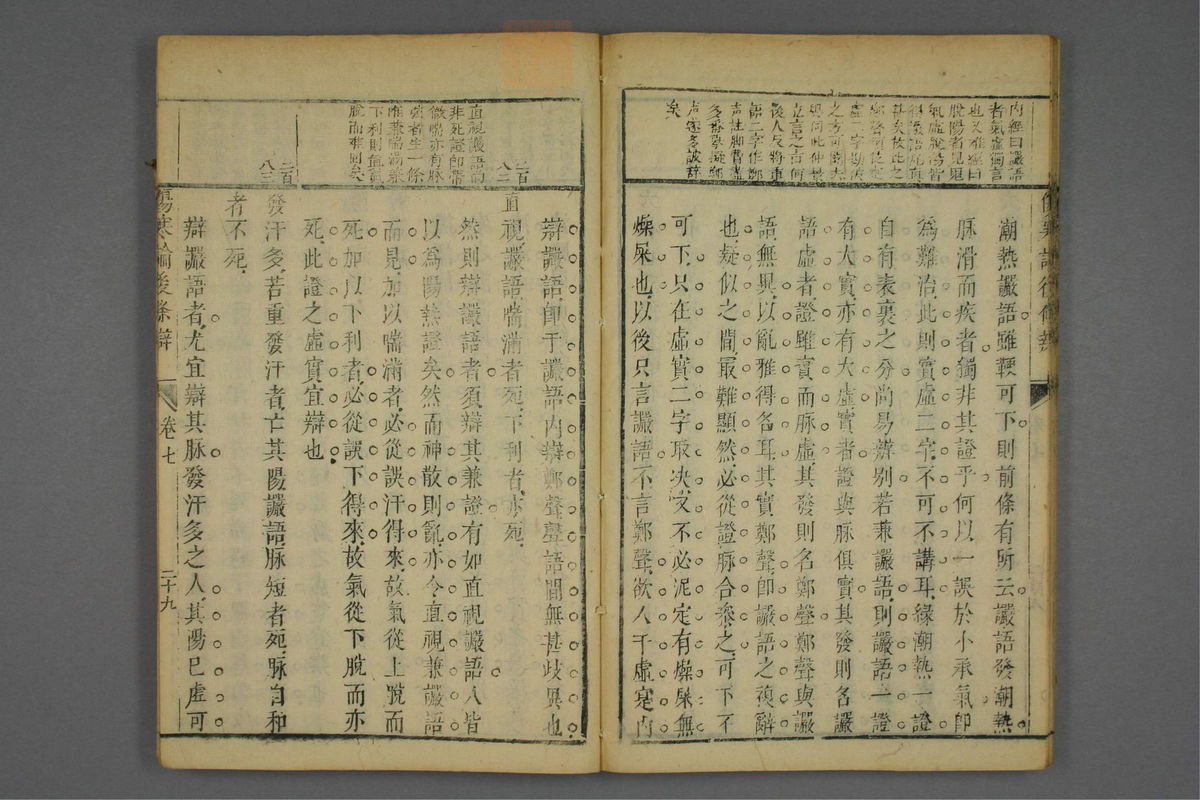 内經曰讝語
者氣虛獨言
也又難經曰
脫陽者見鬼
語二字作鄭
潮熱讝語雖鞕可下則前條有所云讝語發潮熱
脉滑而疾者獨非其證乎何以一誤於小承氣即
為難治此則實虛二字不可不講耳緣潮熱一證
自有表裏之分尚易辨別若兼讝語則讝語一證
有大實亦有大虛實者證與脉俱實其發則名讝
語虛者證雖實而脉虛其發則名鄭聲鄭聲與讝
語無異以亂雅得名耳其實鄭聲即讝語之複辭
也疑似之間最難顯然必從證脉合參之可下不
可下只在虛實二字取决又不必泥定有燥屎無
燥屎也以後只言讝語不言鄭聲欲人于虛寔內
辯讝語即于讝語內辯鄭聲聲語間無甚歧異也
直視讝語喘滿者死下利者亦死
然則辯讝語者須辯其兼證有如直視讝語人皆
以為陽熱證矣然而神散則亂亦令直視兼讝語
而見加以喘滿者必從誤汗得來故氣從上脫而
死加以下利者必從誤下得來故氣從下脫而亦
死此證之虛實宜辯也
發汗多若重發汗者亡其陽讝語脉短者死脉自和
者不死
辯讝語者尤宜辯其脉發汗多之人其陽已虛可
直視讝語滿
非死證即帶
微喘亦有脉
弦者生一條
唯兼喘滿兼
下利則真氣
脫而難回矣
二百
八二
二百
八三
傷寒論後條辯
卷七
二十九